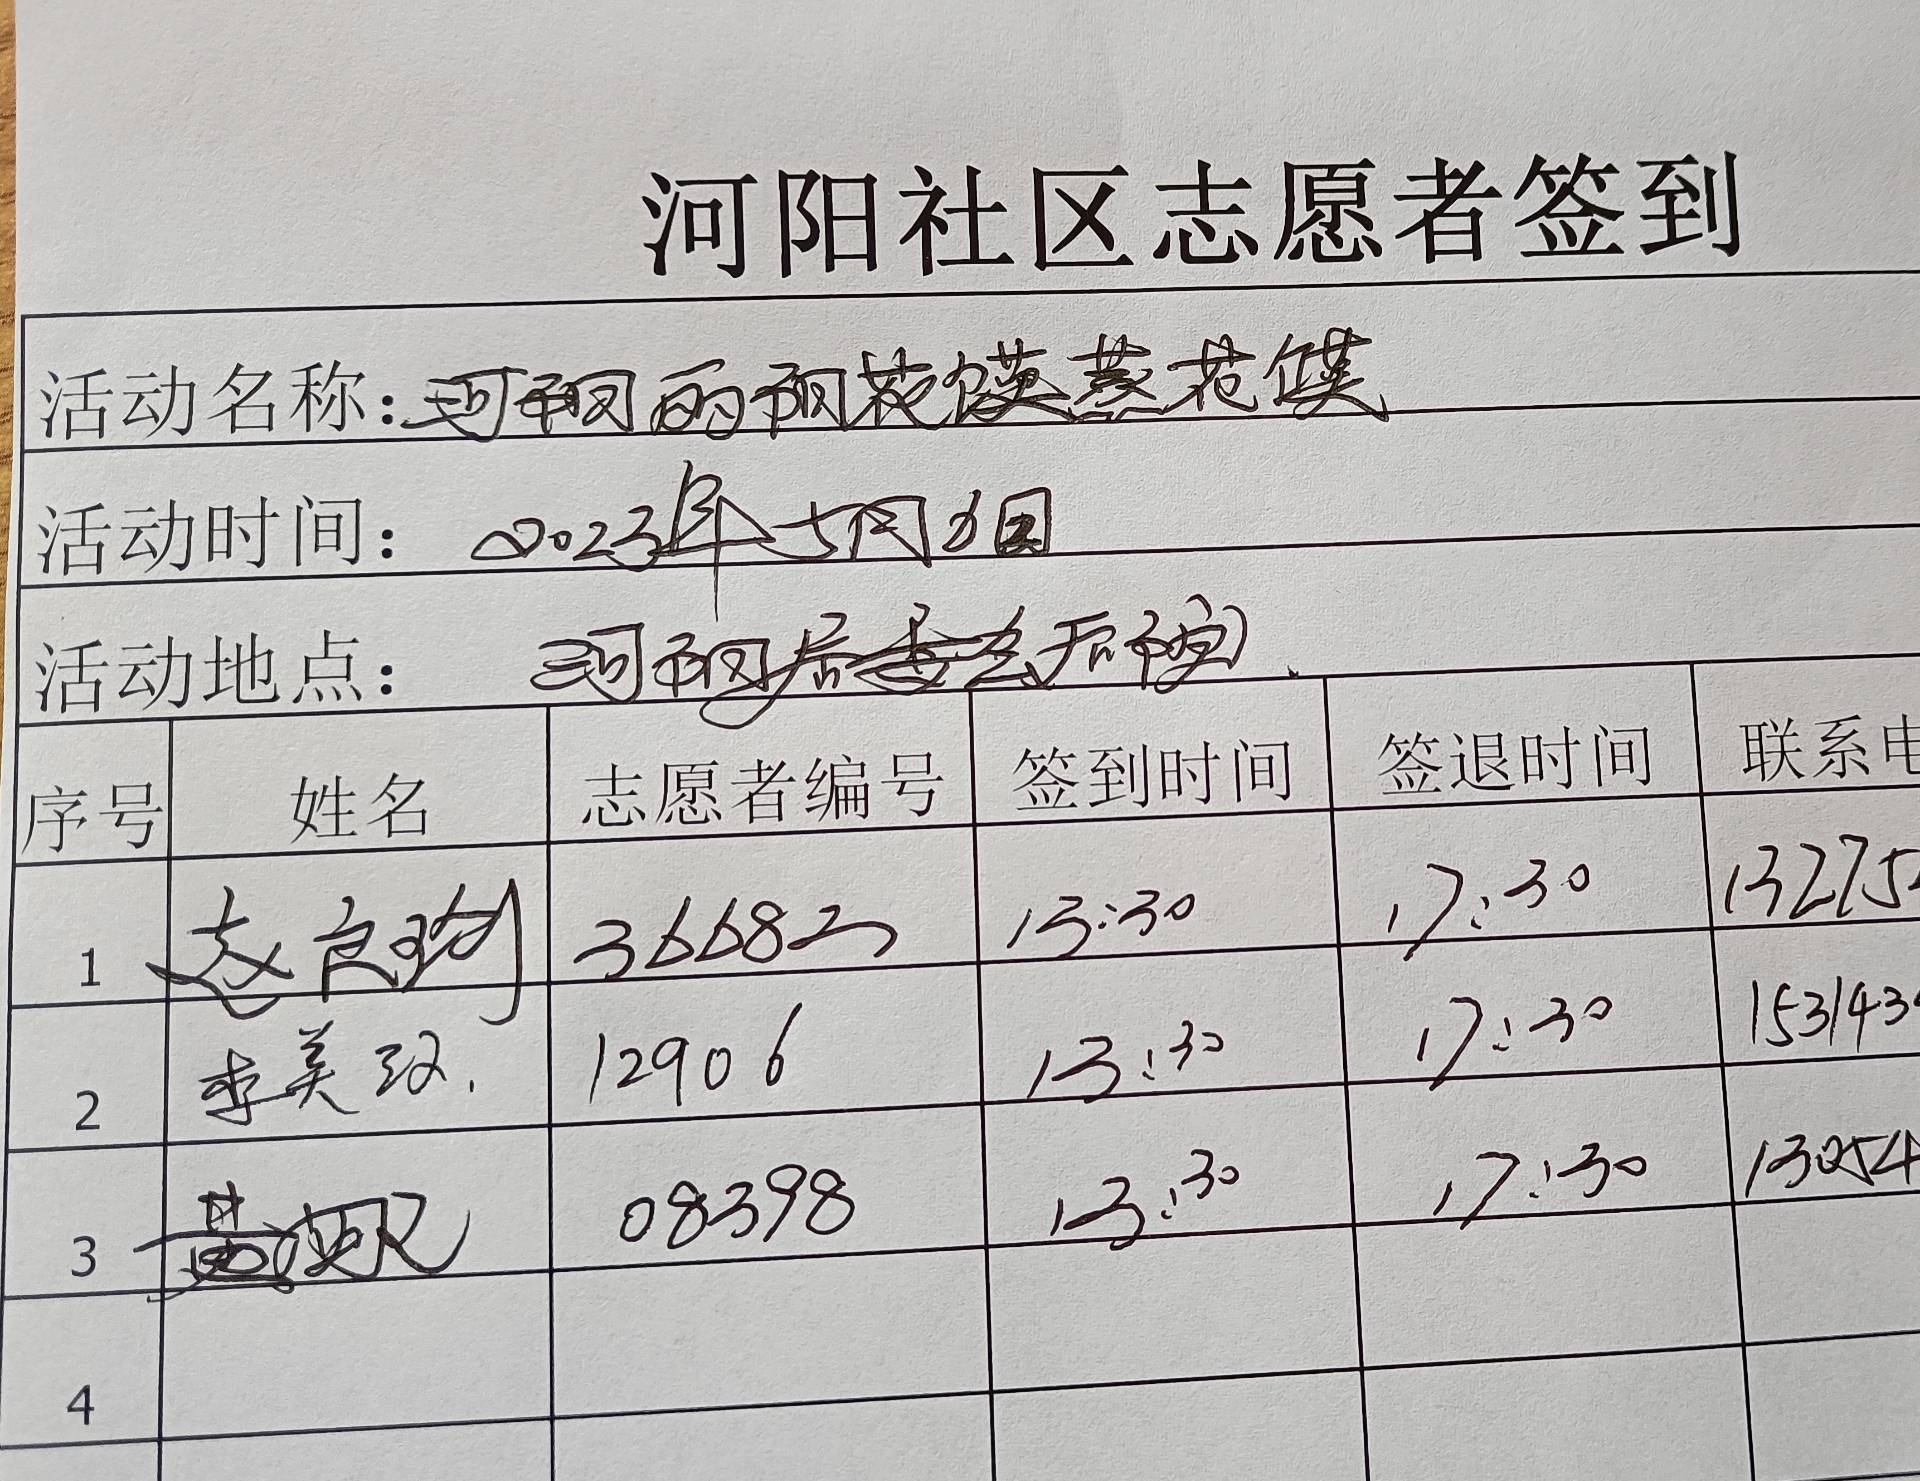 河阳社区志愿者签到
活动名称：河阳的阳花馍蒸花馍
活动时间：2023年5月日
活动地点：河阳居委会后院
序号 姓名 志愿者编号 签到时间 签退时间 联系电
1 赵良 36682 13:30 17:30 13275
2 李美玟 12906 13:30 17:30 153143
3 黄 08398 13:30 17:30 13054
4